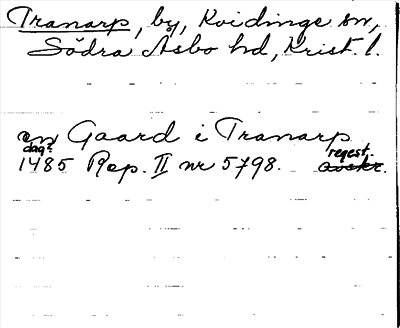 Tranarp, by, Kvidinge sn,
Södra Åsbo hd, Krist. l.
en Gaard i Tranarp
dag?
1485 Rep. II nr 5798. regest.
avskr.